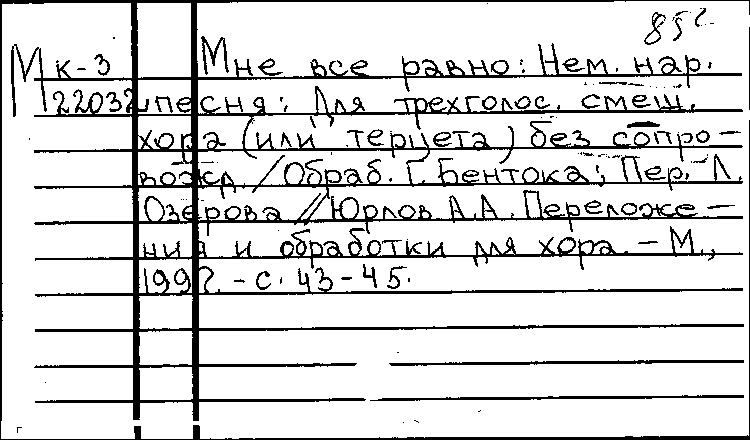 85г.
М к-3 Мне все равно: Нем. нар.
22032 песня: Для трехголос. смеш.
хора (или терцета) без сопро-
вожд. / Обраб. Г. Бентока; Пер. Л.
Озерова // Юрлов А.А. Переложе-
ния и обработки для хора. - М.,
199?. - с. 43-45.